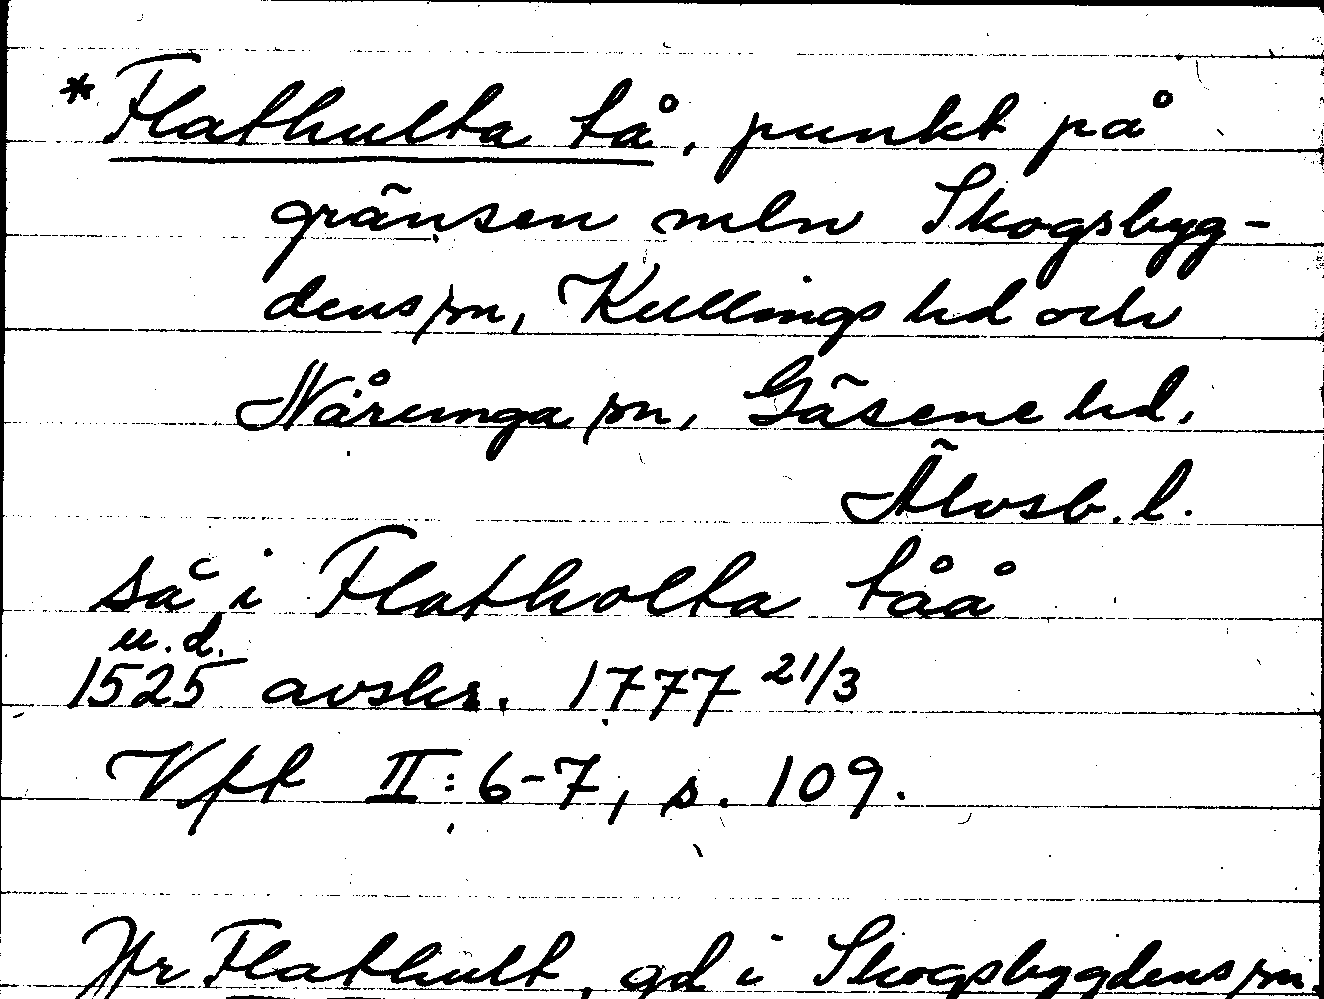 *Flathulta tå, punkt på
gränsen mln Skogsbyg-
dens sn, Kullings hd och
Nårunga sn, Gäsene hd,
Älvsb. l.
så i Flatholta tåå
u.d.
1525 avskr. 1777 21/3
Vft II:6-7, s. 109.
Jfr Flathult, gd i Skogsbygdens sn.